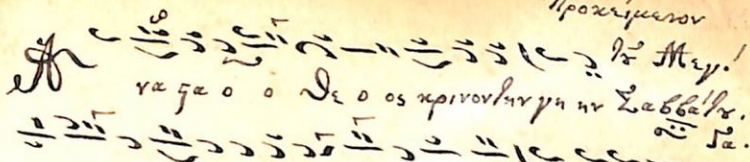 Προκείμενον
τῷ Μεγ.
Ἀ να στα ο ο Θε ο ος κρινοντην γη ην Σαββάτῳ.